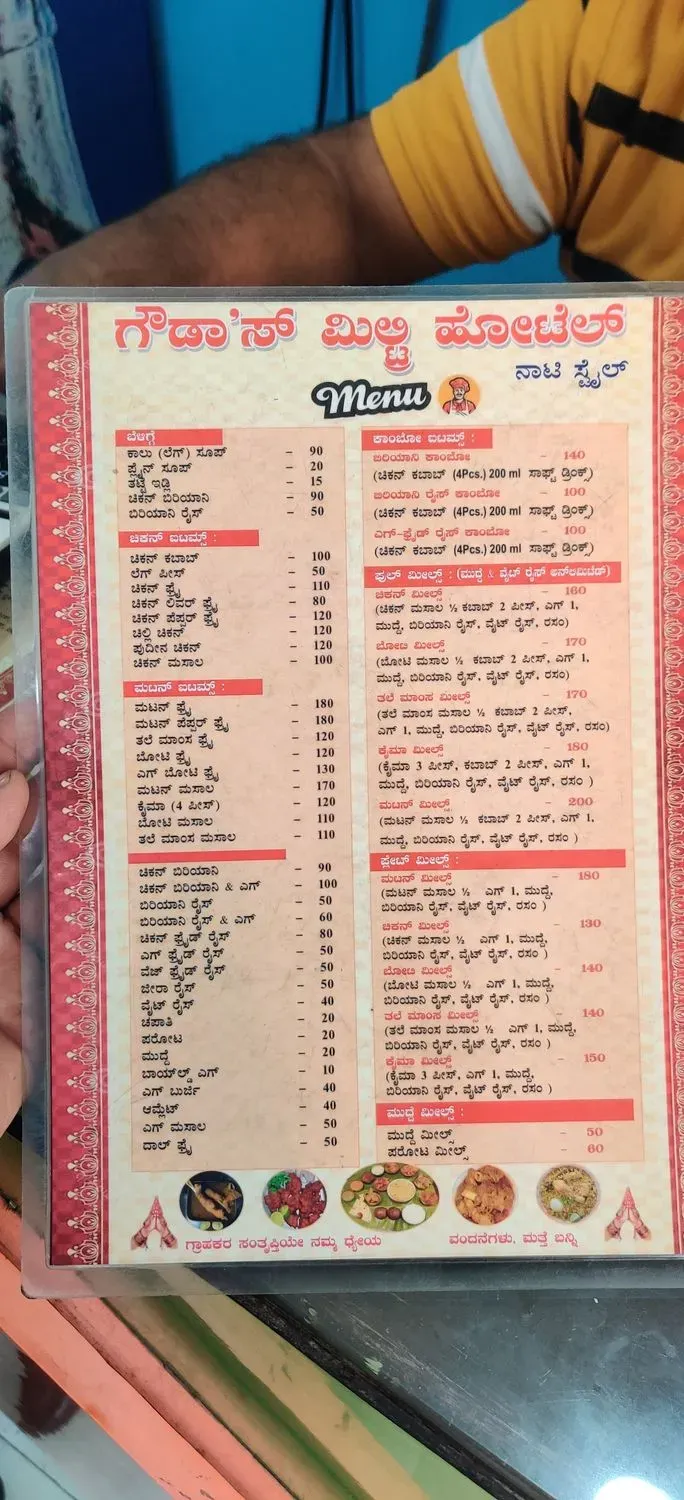 ಗೌಡಾ'ಸ್ ಮಿಲ್ಟ್ರಿ ಹೋಟೆಲ್
ನಾಟಿ ಸ್ಟೈಲ್
Menu
ಬೆಳಿಗ್ಗೆ
ಕಾಲು (ಲೆಗ್) ಸೂಪ್ – 90
ಪ್ಲೈನ್ ಸೂಪ್ – 20
ತಟ್ಟೆ ಇಡ್ಲಿ – 15
ಚಿಕನ್ ಬಿರಿಯಾನಿ – 90
ಬಿರಿಯಾನಿ ರೈಸ್ – 50
ಚಿಕನ್ ಐಟಮ್ಸ್ :
ಚಿಕನ್ ಕಬಾಬ್ – 100
ಲೆಗ್ ಪೀಸ್ – 50
ಚಿಕನ್ ಫ್ರೈ – 110
ಚಿಕನ್ ಲಿವರ್ ಫ್ರೈ – 80
ಚಿಕನ್ ಪೆಪ್ಪರ್ ಫ್ರೈ – 120
ಚಿಲ್ಲಿ ಚಿಕನ್ – 120
ಪುದೀನ ಚಿಕನ್ – 120
ಚಿಕನ್ ಮಸಾಲ – 100
ಮಟನ್ ಐಟಮ್ಸ್ :
ಮಟನ್ ಫ್ರೈ – 180
ಮಟನ್ ಪೆಪ್ಪರ್ ಫ್ರೈ – 180
ತಲೆ ಮಾಂಸ ಫ್ರೈ – 120
ಬೋಟಿ ಫ್ರೈ – 120
ಎಗ್ ಬೋಟಿ ಫ್ರೈ – 130
ಮಟನ್ ಮಸಾಲ – 170
ಕೈಮಾ (4 ಪೀಸ್) – 120
ಬೋಟಿ ಮಸಾಲ – 110
ತಲೆ ಮಾಂಸ ಮಸಾಲ – 110
ಚಿಕನ್ ಬಿರಿಯಾನಿ – 90
ಚಿಕನ್ ಬಿರಿಯಾನಿ & ಎಗ್ – 100
ಬಿರಿಯಾನಿ ರೈಸ್ – 50
ಬಿರಿಯಾನಿ ರೈಸ್ & ಎಗ್ – 60
ಚಿಕನ್ ಫ್ರೈಡ್ ರೈಸ್ – 80
ಎಗ್ ಫ್ರೈಡ್ ರೈಸ್ – 50
ವೆಜ್ ಫ್ರೈಡ್ ರೈಸ್ – 50
ಜೀರಾ ರೈಸ್ – 50
ವೈಟ್ ರೈಸ್ – 40
ಚಪಾತಿ – 20
ಪರೋಟ – 20
ಮುದ್ದೆ – 20
ಬಾಯ್ಲ್ಡ್ ಎಗ್ – 10
ಎಗ್ ಬುರ್ಜಿ – 40
ಆಮ್ಲೆಟ್ – 40
ಎಗ್ ಮಸಾಲ – 50
ದಾಲ್ ಫ್ರೈ – 50
ಕಾಂಬೋ ಐಟಮ್ಸ್ :
ಬಿರಿಯಾನಿ ಕಾಂಬೋ – 140
(ಚಿಕನ್ ಕಬಾಬ್ (4Pcs.) 200 ml ಸಾಫ್ಟ್ ಡ್ರಿಂಕ್ಸ್)
ಬಿರಿಯಾನಿ ರೈಸ್ ಕಾಂಬೋ – 100
(ಚಿಕನ್ ಕಬಾಬ್ (4Pcs.) 200 ml ಸಾಫ್ಟ್ ಡ್ರಿಂಕ್ಸ್)
ಎಗ್-ಫ್ರೈಡ್ ರೈಸ್ ಕಾಂಬೋ – 100
(ಚಿಕನ್ ಕಬಾಬ್ (4Pcs.) 200 ml ಸಾಫ್ಟ್ ಡ್ರಿಂಕ್ಸ್)
ಫುಲ್ ಮೀಲ್ಸ್ : (ಮುದ್ದೆ & ವೈಟ್ ರೈಸ್ ಅನ್‌ಲಿಮಿಟೆಡ್)
ಚಿಕನ್ ಮೀಲ್ಸ್ – 160
(ಚಿಕನ್ ಮಸಾಲ ½ ಕಬಾಬ್ 2 ಪೀಸ್, ಎಗ್ 1,
ಮುದ್ದೆ, ಬಿರಿಯಾನಿ ರೈಸ್, ವೈಟ್ ರೈಸ್, ರಸಂ)
ಬೋಟಿ ಮೀಲ್ಸ್ – 170
(ಬೋಟಿ ಮಸಾಲ ½ ಕಬಾಬ್ 2 ಪೀಸ್, ಎಗ್ 1,
ಮುದ್ದೆ, ಬಿರಿಯಾನಿ ರೈಸ್, ವೈಟ್ ರೈಸ್, ರಸಂ)
ತಲೆ ಮಾಂಸ ಮೀಲ್ಸ್ – 170
(ತಲೆ ಮಾಂಸ ಮಸಾಲ ½ ಕಬಾಬ್ 2 ಪೀಸ್,
ಎಗ್ 1, ಮುದ್ದೆ, ಬಿರಿಯಾನಿ ರೈಸ್, ವೈಟ್ ರೈಸ್, ರಸಂ)
ಕೈಮಾ ಮೀಲ್ಸ್ – 180
(ಕೈಮಾ 3 ಪೀಸ್, ಕಬಾಬ್ 2 ಪೀಸ್, ಎಗ್ 1,
ಮುದ್ದೆ, ಬಿರಿಯಾನಿ ರೈಸ್, ವೈಟ್ ರೈಸ್, ರಸಂ )
ಮಟನ್ ಮೀಲ್ಸ್ – 200
(ಮಟನ್ ಮಸಾಲ ½ ಕಬಾಬ್ 2 ಪೀಸ್, ಎಗ್ 1,
ಮುದ್ದೆ, ಬಿರಿಯಾನಿ ರೈಸ್, ವೈಟ್ ರೈಸ್, ರಸಂ )
ಪ್ಲೇಟ್ ಮೀಲ್ಸ್ :
ಮಟನ್ ಮೀಲ್ಸ್ – 180
(ಮಟನ್ ಮಸಾಲ ½ ಎಗ್ 1, ಮುದ್ದೆ,
ಬಿರಿಯಾನಿ ರೈಸ್, ವೈಟ್ ರೈಸ್, ರಸಂ )
ಚಿಕನ್ ಮೀಲ್ಸ್ – 130
(ಚಿಕನ್ ಮಸಾಲ ½ ಎಗ್ 1, ಮುದ್ದೆ,
ಬಿರಿಯಾನಿ ರೈಸ್, ವೈಟ್ ರೈಸ್, ರಸಂ )
ಬೋಟಿ ಮೀಲ್ಸ್ – 140
(ಬೋಟಿ ಮಸಾಲ ½ ಎಗ್ 1, ಮುದ್ದೆ,
ಬಿರಿಯಾನಿ ರೈಸ್, ವೈಟ್ ರೈಸ್, ರಸಂ )
ತಲೆ ಮಾಂಸ ಮೀಲ್ಸ್ – 140
(ತಲೆ ಮಾಂಸ ಮಸಾಲ ½ ಎಗ್ 1, ಮುದ್ದೆ,
ಬಿರಿಯಾನಿ ರೈಸ್, ವೈಟ್ ರೈಸ್, ರಸಂ )
ಕೈಮಾ ಮೀಲ್ಸ್ – 150
(ಕೈಮಾ 3 ಪೀಸ್, ಎಗ್ 1, ಮುದ್ದೆ,
ಬಿರಿಯಾನಿ ರೈಸ್, ವೈಟ್ ರೈಸ್, ರಸಂ )
ಮುದ್ದೆ ಮೀಲ್ಸ್ :
ಮುದ್ದೆ ಮೀಲ್ಸ್ – 50
ಪರೋಟ ಮೀಲ್ಸ್ – 60
ಗ್ರಾಹಕರ ಸಂತೃಪ್ತಿಯೇ ನಮ್ಮ ಧ್ಯೇಯ ವಂದನೆಗಳು, ಮತ್ತೆ ಬನ್ನಿ